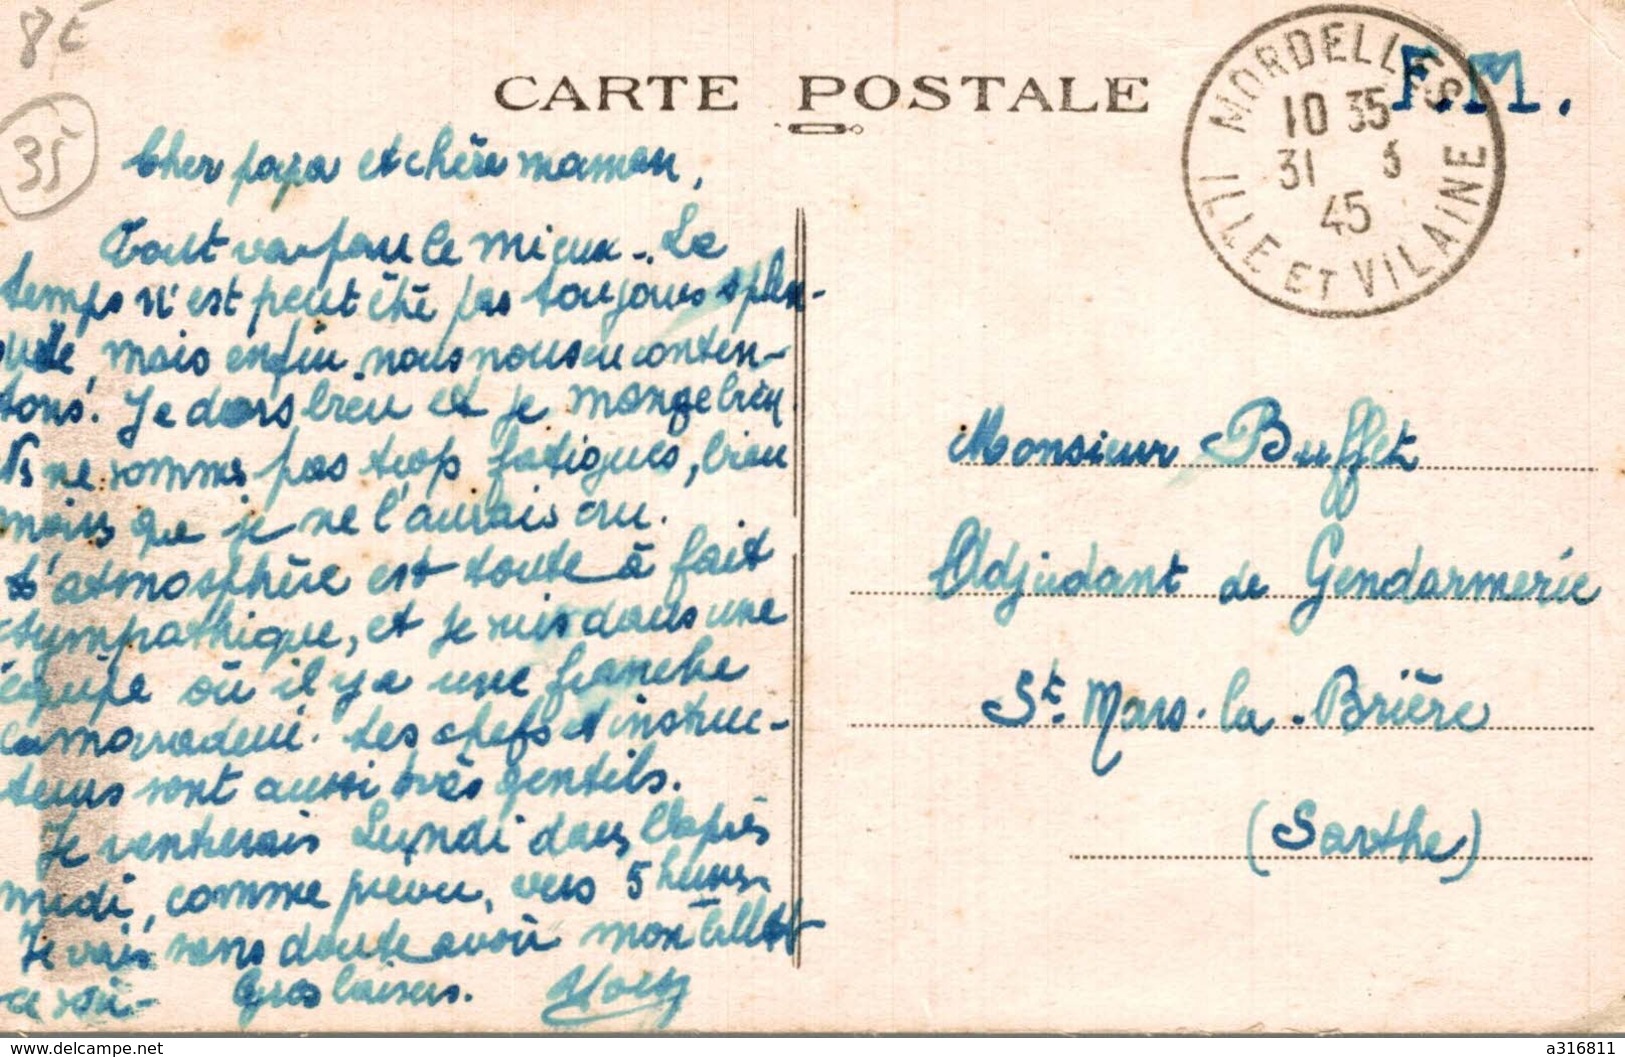 8€
35
CARTE POSTALE
F.M.
MORDELLES
10 35
31 3
45
ILLE ET VILAINE
Cher papa et chère maman,
Tout va pour le mieux. Le
temps n'est peut être pas toujours splen-
dide, mais enfin nous nous en conten-
tons. Je dors bien et je mange bien
Ns ne sommes pas trop fatigués, bien
moins que je ne l'aurais cru.
L'atmosphère est toute à fait
sympathique, et je suis dans une
équipe où il y a une franche
camaraderie. Les chefs et instruc-
teurs sont aussi très gentils.
Je rentrerais Lundi dans l'après
midi, comme prévu, vers 5 heures.
Je vais sans doute avoir mon billet
ce soir - Gros baisers.
Monsieur Buffet
Adjudant de Gendarmerie
St. Mars-la-Brière
(Sarthe)
delcampe.net
a316811